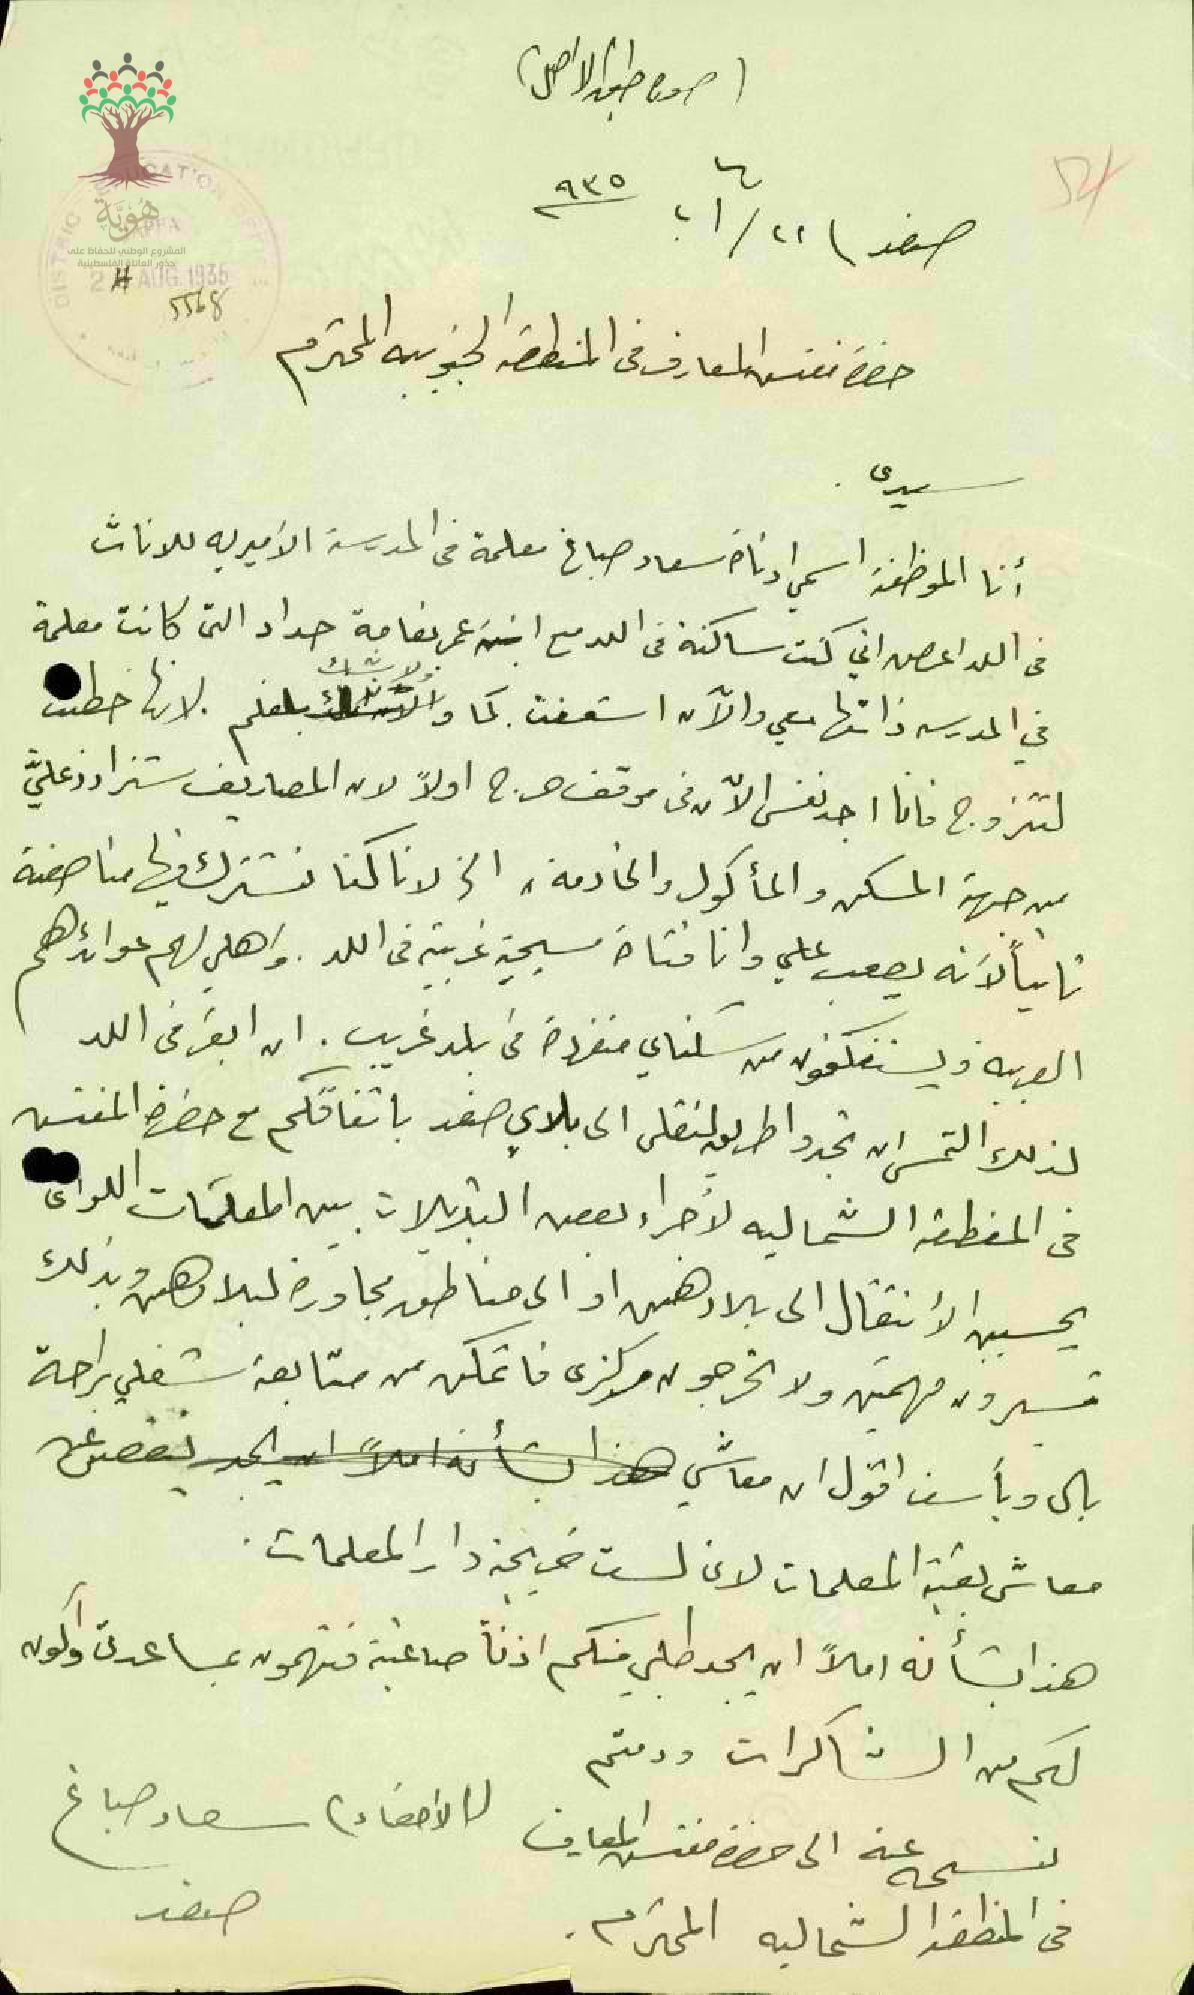 (صورة طبق الاصل)
صفد ٢٢/٨/٩٣٥
54
هُوِيَّة
المشروع الوطني للحفاظ على
جذور العائلة الفلسطينية
DISTRICT EDUCATION OFFICE
AUG 1935
5568
حضرة مفتش المعارف في المنطقة الجنوبيه المحترم
سيدي
أنا الموظفة اسمي ادناه سعاد صباغ معلمة في المدرسة الاميريه للاناث
في اللد اعرض اني كنت ساكنة في اللد مع ابنة عمي نعامة حداد التي كانت معلمة
في المدرسه ذاتها معي والآن استعفت كما ولا شك بلغكم لانها خطبت
لتتزوج فانا اجد نفسي الآن في موقف حرج اولاً لان المصاريف ستزداد عليَّ
من جهة المسكن والمأكول والخادمة الخ لاننا كنا نشترك فيها مناصفة
ثانياً لأنه يصعب علي وانا فتاة مسيحية غريبة في اللد. وأهلي لهم عوائدهم
العربيه ويستنكفون من سكناي منفردة في بلد غريب. ان ابقى في اللد
لذلك التمس ان تجدوا طريق لنقلي الى بلدي صفد باتفاقكم مع حضرة المفتش
في المنطقة الشماليه لأجراء بعض التبديلات بين المعلمات اللواتي
يحسبن الأنتقال الى بلادهن او الى مناطق مجاورة لبلادهن وبذلك
تسيرون مهمتي ولا تحرجون مركزي فاتمكن من متابعة شغلي براحة
بال وبأسف اقول ان معاشي هذا بشأنه املاً ان يجد ينقص عن
معاش بقية المعلمات لاني لست خريجة دار المعلمات.
هذا بشأنه املاً ان يجد طلبي منكم اذناً صاغية فتهمون بمساعدتي واكون
لكم من الشاكرات ودمتم
(الامضاء) سعاد صباغ
صفد
نسخه عنه الى حضرة مفتش المعارف
في المنطقة الشماليه المحترم.